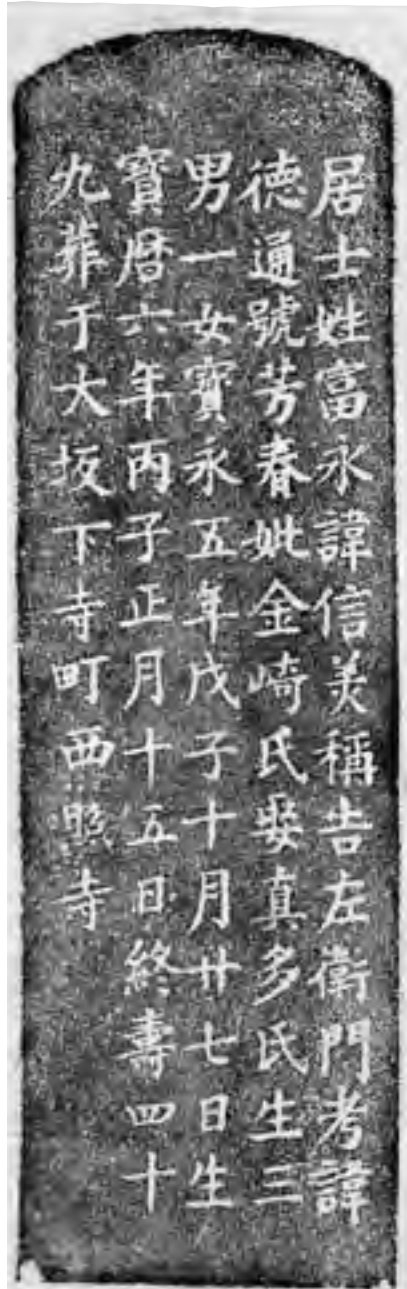 居士姓富永諱信美稱吉左衛門考諱
德通號芳春妣金崎氏娶真多氏生三
男一女寶永五年戊子十月廿七日生
寶曆六年丙子正月十五日終壽四十
九葬于大坂下寺町西照寺